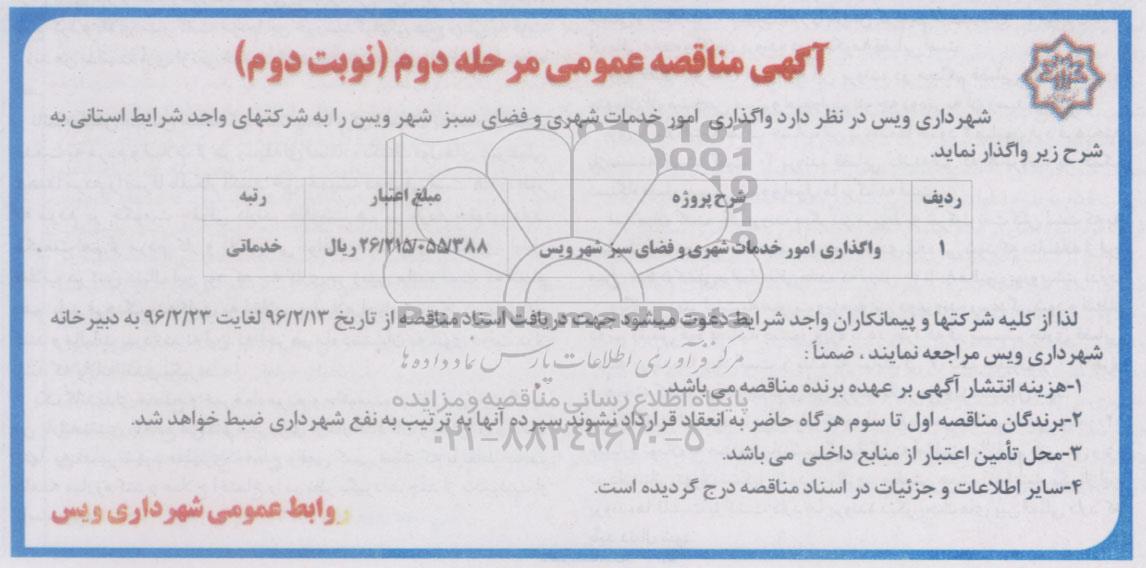 آگهی مناقصه عمومی مرحله دوم (نوبت دوم)
شهرداری ویس در نظر دارد واگذاری امور خدمات شهری و فضای سبز شهر ویس را به شرکتهای واجد شرایط استانی به
شرح زیر واگذار نماید.
ردیف شرح پروژه مبلغ اعتبار رتبه
۱ واگذاری امور خدمات شهری و فضای سبز شهر ویس ریال خدماتی
لذا از کلیه شرکتها و پیمانکاران واجد شرایط دعوت میشود جهت دریافت اسناد مناقصه از تاریخ ۹۶/۲/۱۳ لغایت ۹۶/۲/۲۳ به دبیرخانه
شهرداری ویس مراجعه نمایند ، ضمناً :
مرکز فرآوری اطلاعات پارس نماد داده ها
۱-هزینه انتشار آگهی بر عهده برنده مناقصه می باشد.
پایگاه اطلاع رسانی مناقصه و مزایده
۲-برندگان مناقصه اول تا سوم هرگاه حاضر به انعقاد قرارداد نشوند سپرده آنها به ترتیب به نفع شهرداری ضبط خواهد شد.
۰۲۱-۸۸۳۴۹۶۷۰-۵
۳-محل تأمین اعتبار از منابع داخلی می باشد.
۴-سایر اطلاعات و جزئیات در اسناد مناقصه درج گردیده است.
روابط عمومی شهرداری ویس